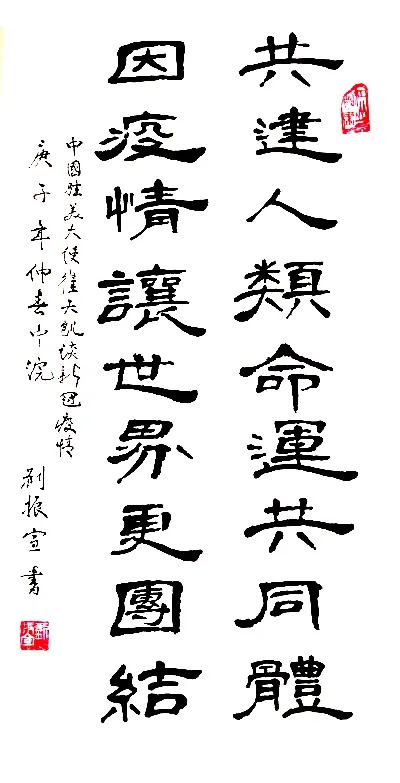 共建人類命運共同體
因疫情讓世界更團結
中國駐美大使崔天凱談新冠疫情
庚子年仲春中浣 劉振宣書